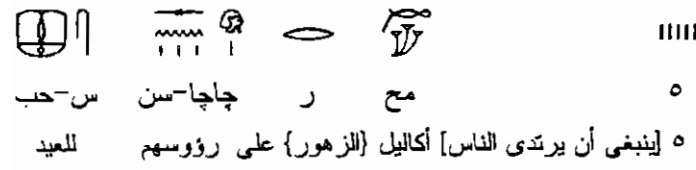 ٥ مح ر چاچا-سن س-حب
٥ [ينبغى أن يرتدى الناس] أكاليل {الزهور} على رؤوسهم للعيد